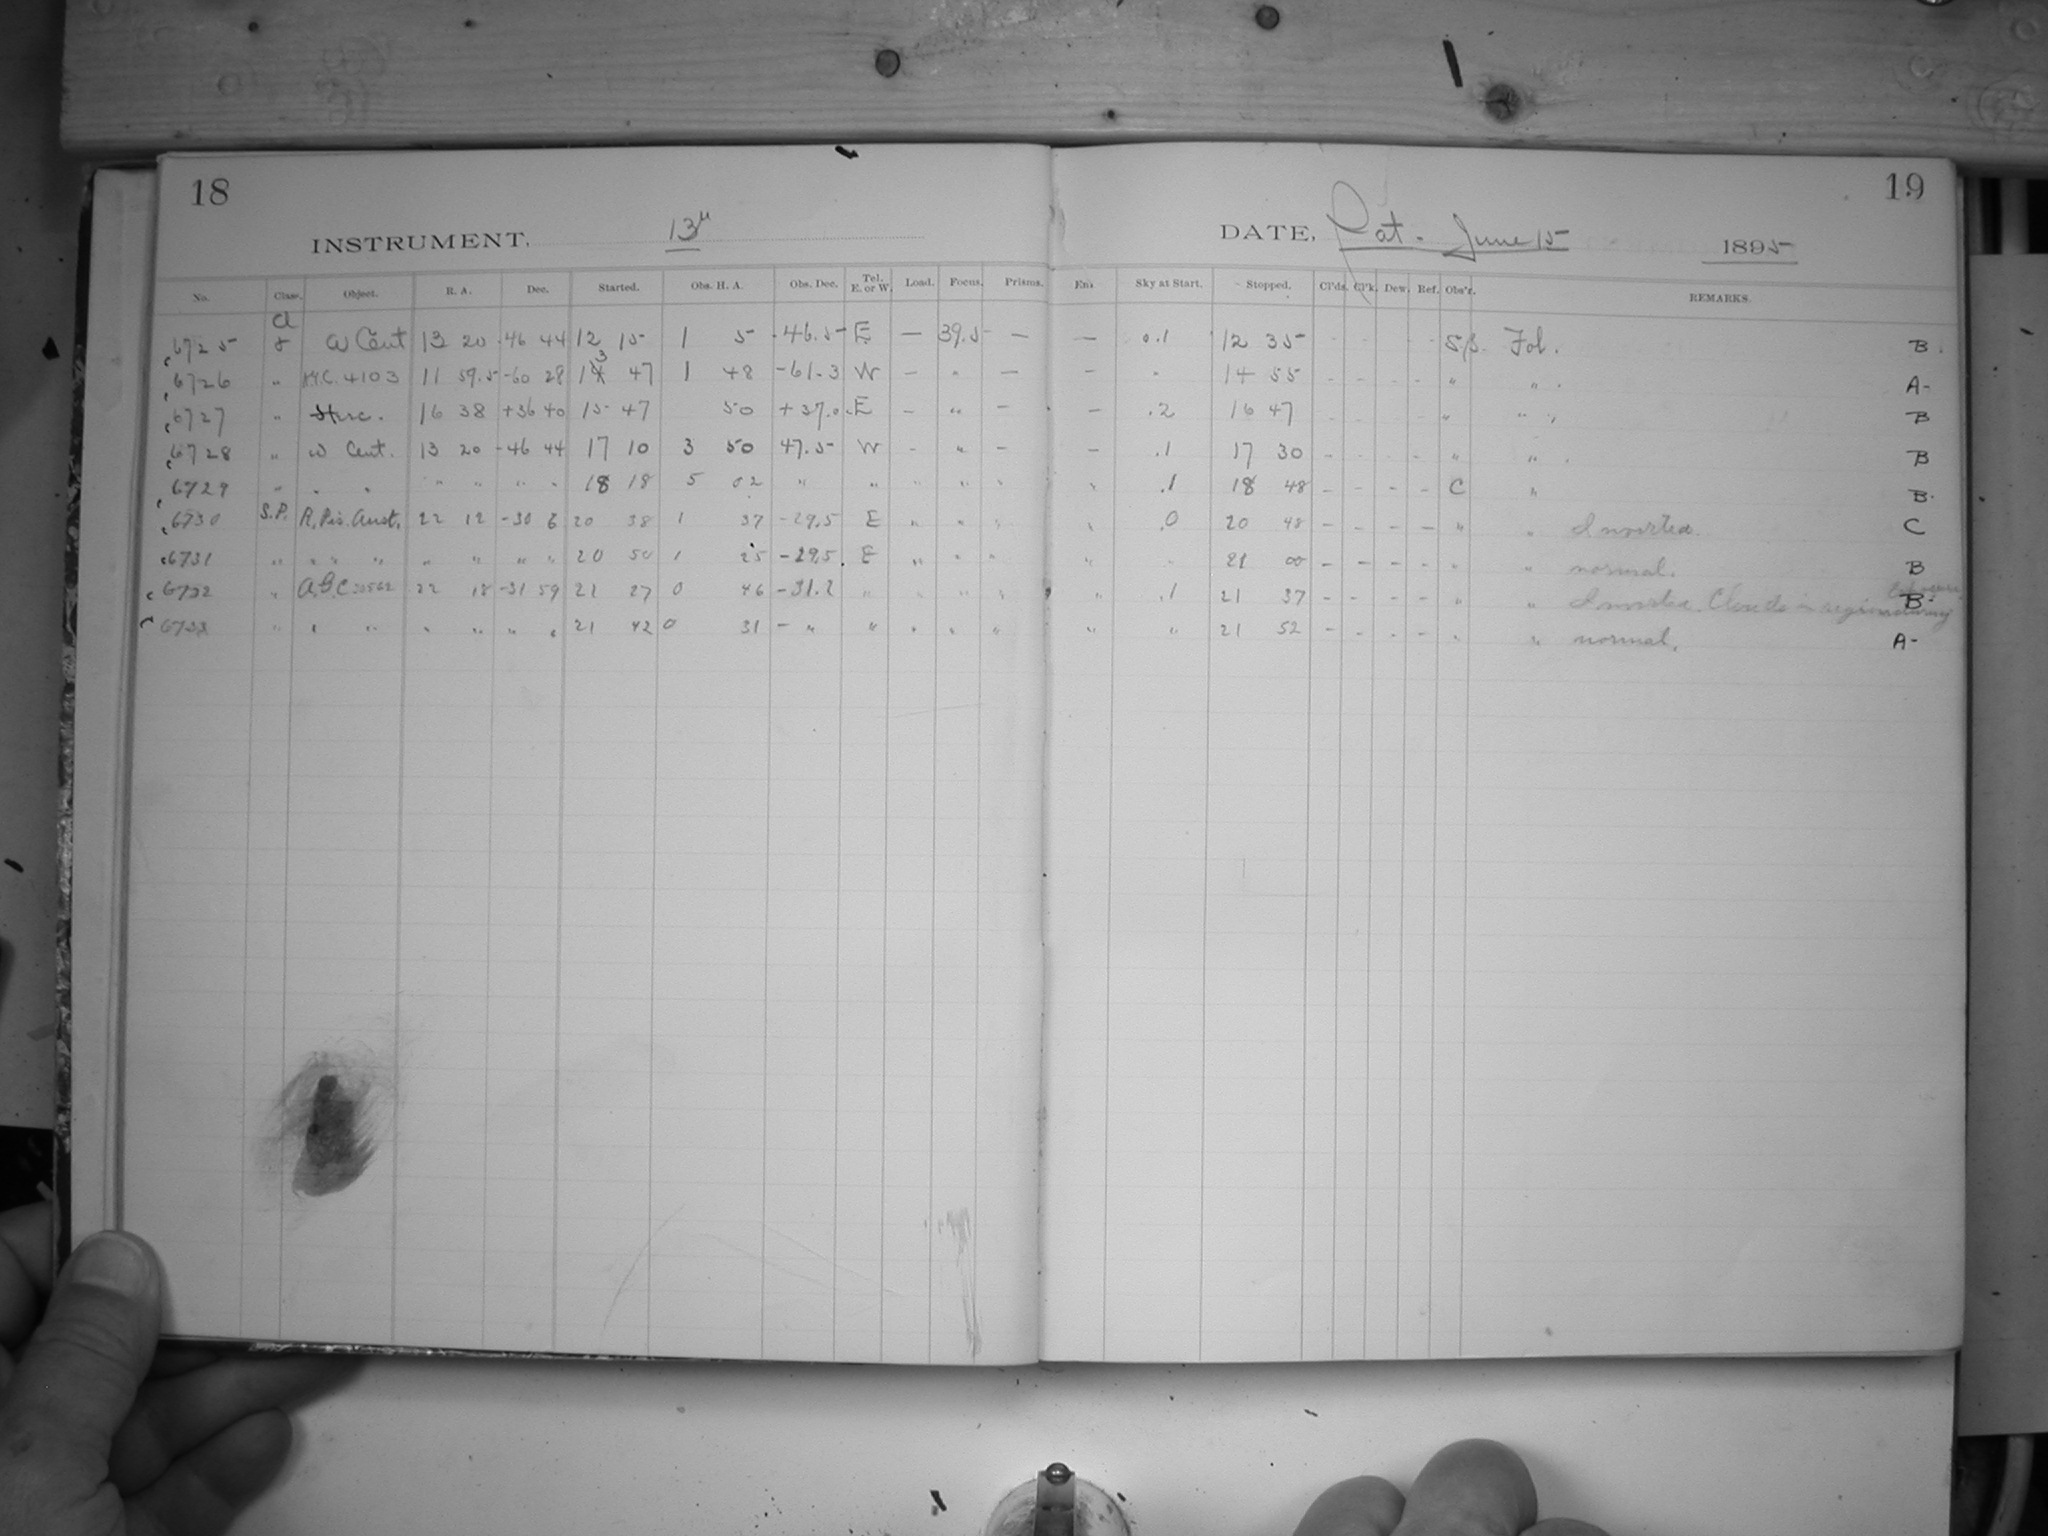 18
INSTRUMENT, 13"
No. Class. Object. R. A. Dec. Started. Obs. H. A. Obs. Dec. Tel. E. or W. Load. Focus. Prisms.
Cl
6725 8 ω Cent 13 20 -46 44 12 15 1 5 -46.5 E — 39.5 —
6726 " N.G.C. 4103 11 59.5 -60 28 13 47 1 48 -61.3 W — " —
6727 " Herc. 16 38 +36 40 15 47 50 +37.0 E — " —
6728 " ω Cent. 13 20 -46 44 17 10 3 50 47.5 W - " —
6729 " " " " " " " 18 18 5 02 " " " " "
6730 S.P. R. Pis. Aust. 22 12 -30 6 20 38 1 37 -29.5 E " " "
6731 " " " " " " " " 20 50 1 25 -29.5 E " " "
6732 " A.G.C. 22 18 -31 59 21 27 0 46 -31.2 " " " "
6733 " " " " " " " 21 42 0 31 - " " " " "
19
DATE, Sat. June 15 1895
Em. Sky at Start. Stopped. Cl'ds. Cl'k. Dew. Ref. Obs'r. REMARKS.
— 0.1 12 35 - - - - Fol. B.
— " 14 55 - - - - " " . A-
— .2 16 47 - - - - " " . B
— .1 17 30 - - - - " " . B
" .1 18 48 - - - - C " B.
" .0 20 48 - - - - " " Inverted. C
" " 21 00 - - - - " " normal. B
" .1 21 37 - - - - " " Inverted. Clouds in region during exposure B-
" " 21 52 - - - - " " normal. A-